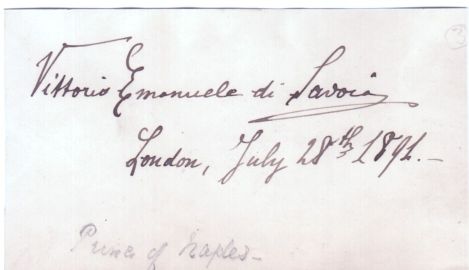 Vittorio Emanuele di Savoia
London, July 28th 1891.-
Prince of Naples-